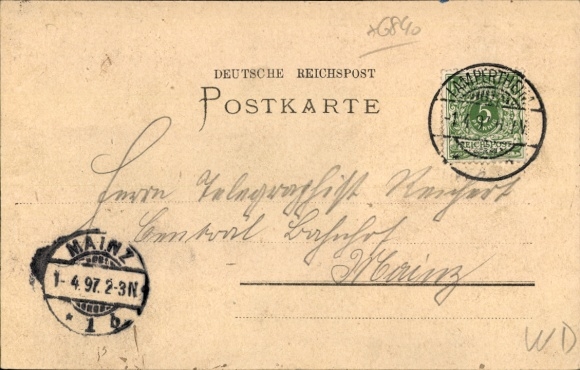 *6840
DEUTSCHE REICHSPOST
POSTKARTE
LAMPERTHEIM
5
Herrn Telegraphist Reichert
Central Bahnhof
Mainz
MAINZ
1- 4.97. 2-3N
* 1 b
WD